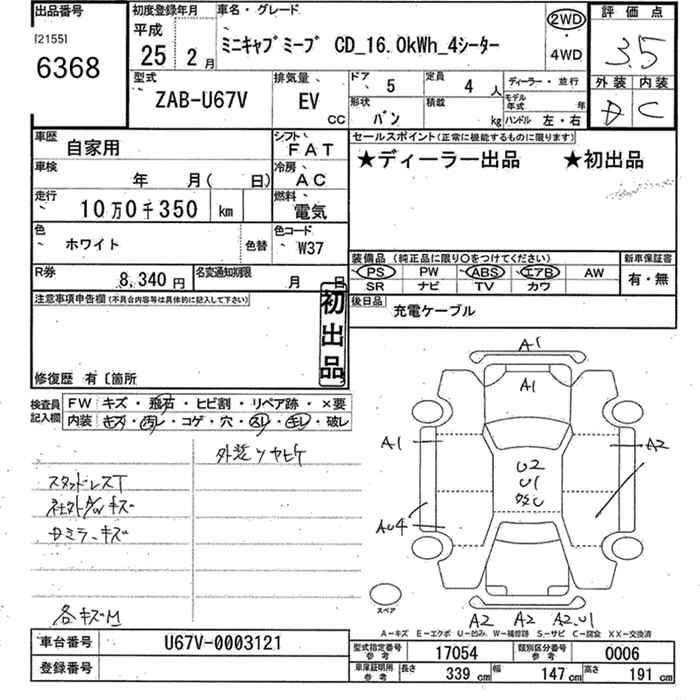 出品番号
[2155]
6368
初度登録年月
平成
25 2 月
車名・グレード
ミニキャブミーブ CD_16.0kWh_4シーター
2WD
・
4WD
評価点
3.5
外装 内装
D C
型式
ZAB-U67V
排気量
EV
CC
ドア 5
定員 4 人
形状 バン
積載 kg
ディーラー・並行
モデル年式 年
ハンドル 左・右
車歴 自家用
シフト FAT
車検 年 月( 日)
冷房 AC
走行 10万0千350 km
燃料 電気
色 ホワイト 色替
色コード W37
R券 8,340 円
名変通知期限 月 日
セールスポイント(正常に機能するものに限ります)
★ディーラー出品 ★初出品
装備品(純正品に限り○をつけてください)
PS PW ABS エアB AW
SR ナビ TV カワ
新車保証書
有・無
後日品 充電ケーブル
注意事項申告欄(不具合内容等は具体的に記入して下さい)
初出品
修復歴 有〔箇所
検査員記入欄
FW キズ・飛石・ヒビ割・リペア跡・×要
内装 キズ・汚レ・コゲ・穴・スレ・キレ・破レ
外装ツヤヒケ
スタッドレスT
キズ
ミラーキズ
各キズM
A1
A1
A1
A2
U2
U1
AU4
A2 A2 A2.U1
スペア
A-キズ E-エクボ U-凹み W-補修跡 S-サビ C-腐食 XX-交換済
車台番号 U67V-0003121
登録番号
型式指定番号 参考 17054
類別区分番号 参考 0006
車庫証明用 参考 長さ 339 cm 幅 147 cm 高さ 191 cm